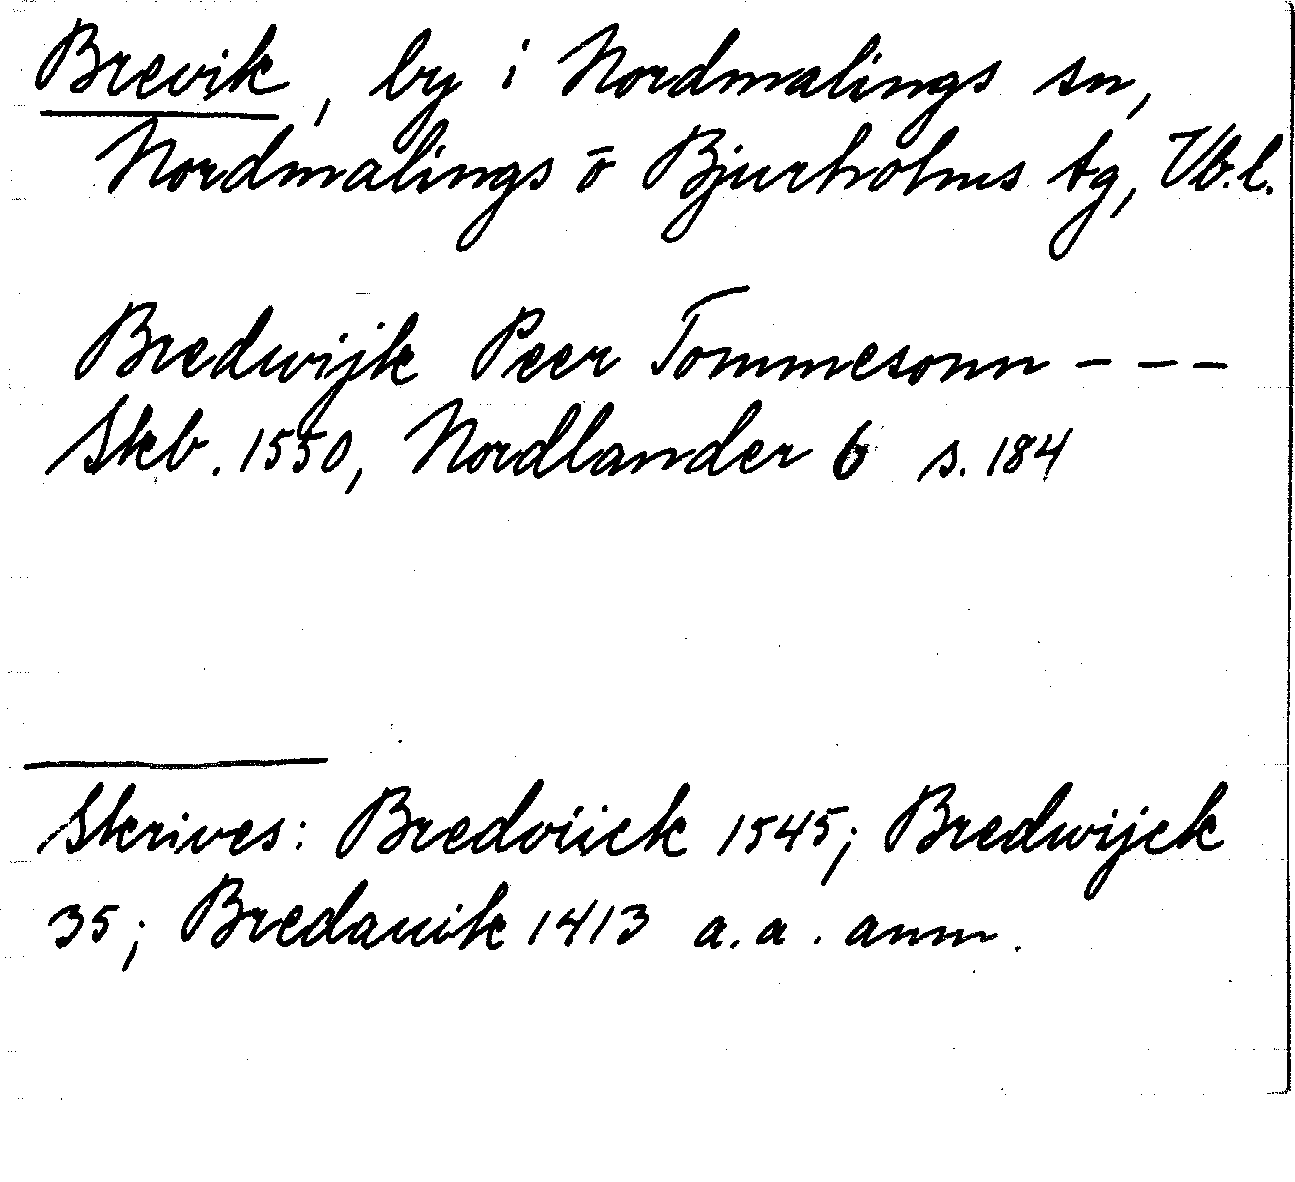 Brevik, by i Nordmalings sn,
Nordmalings o Bjurholms tg, Vb.l.
Bredwijk Peer Tommesonn - - -
Skb. 1550, Nordlander 6 s. 184
Skrives: Bredviick 1545; Bredwijck
35; Bredauik 1413 a. a. anm.